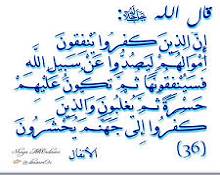 قال الله ﷻ:
إِنَّ الَّذِينَ كَفَرُوا يُنْفِقُونَ
أَمْوَالَهُمْ لِيَصُدُّوا عَنْ سَبِيلِ اللَّهِ
فَسَيُنْفِقُونَهَا ثُمَّ تَكُونُ عَلَيْهِمْ
حَسْرَةً ثُمَّ يُغْلَبُونَ وَالَّذِينَ
كَفَرُوا إِلَى جَهَنَّمَ يُحْشَرُونَ
(36)
الأنفال